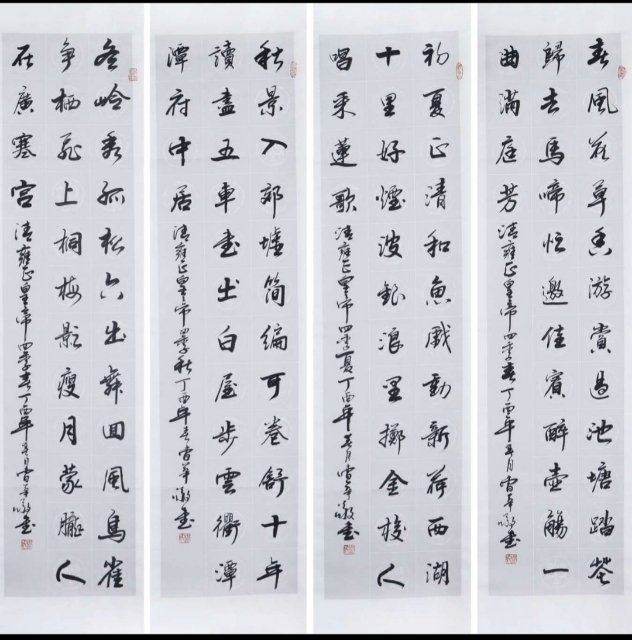 春風花草香游賞過池塘踏花
歸去馬啼忙邀佳賓醉壺觴一
曲滿庭芳 清雍正皇帝四季春丁酉年五月雪華書
初夏正清和魚戲動新荷西湖
十里好煙波銀浪里擲金梭人
唱采蓮歌 清雍正皇帝四季夏丁酉年五月雪華書
秋景入郊墟简編可卷舒十年
讀盡五車書出白屋步雲衢潭
潭府中居 清雍正皇帝四季秋丁酉年雪華書
冬岭秀孤松六出舞回風鳥雀
争栖飛上桐梅影瘦月蒙朧人
在廣塞宫 清雍正皇帝四季丁酉年月雪華書